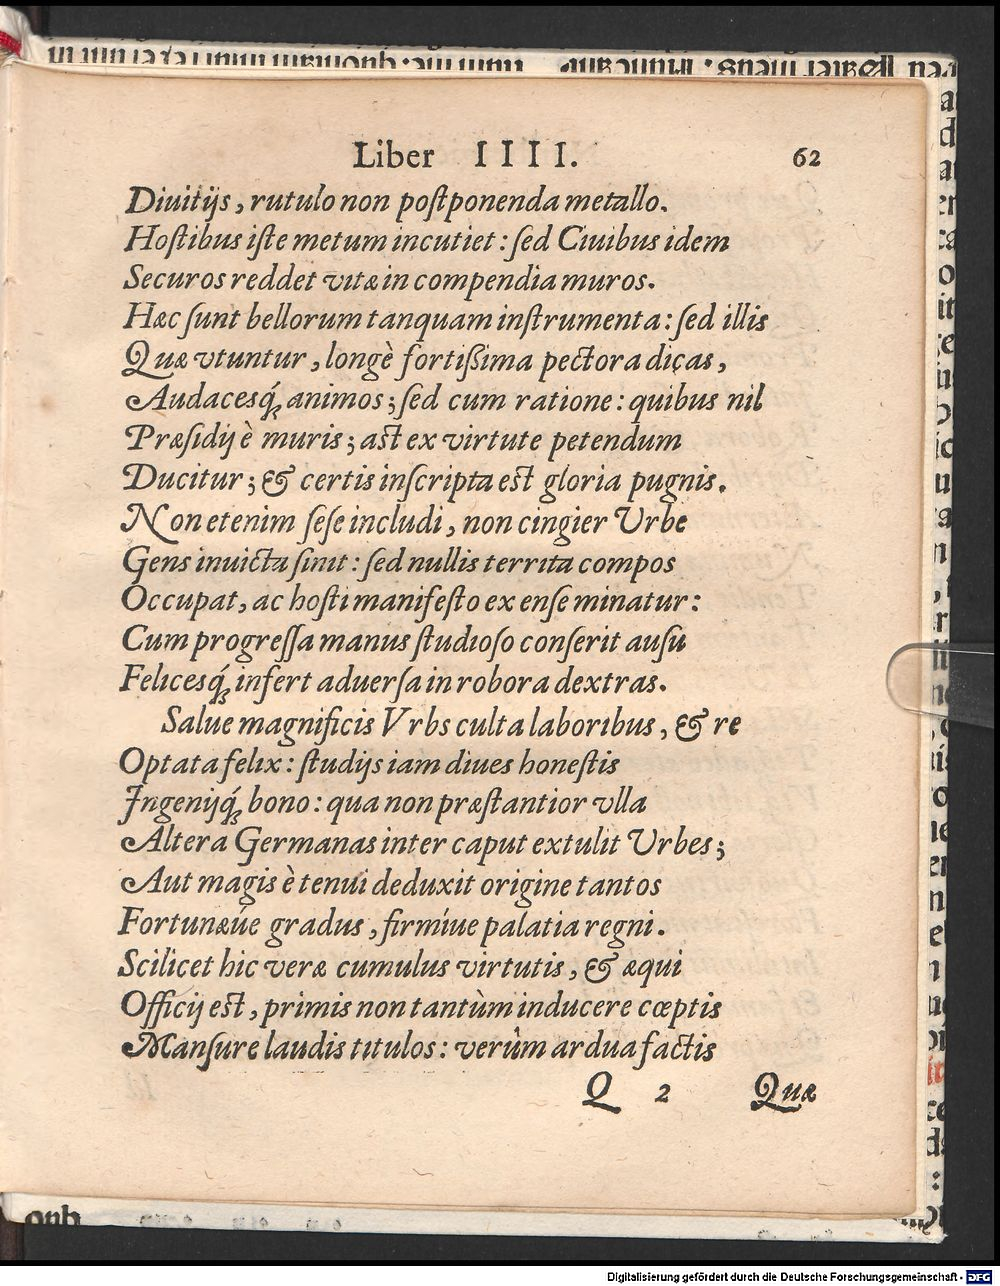 Liber IIII. 62
Diuitijs, rutulo non poſtponenda metallo.
Hoſtibus iſte metum incutiet: ſed Ciuibus idem
Securos reddet vitæ in compendia muros.
Hæc ſunt bellorum tanquam inſtrumenta: ſed illis
Quæ vtuntur, longè fortißima pectora diças,
Audacesq́; animos; ſed cum ratione: quibus nil
Præſidij è muris; aſt ex virtute petendum
Ducitur; & certis inſcripta est gloria pugnis.
Non etenim ſeſe includi, non cingier Urbe
Gens inuicta ſinit: ſed nullis territa compos
Occupat, ac hoſti manifeſto ex enſe minatur:
Cum progreſſa manus ſtudioſo conſerit auſu
Felicesq́; infert aduerſa in robora dextras.
Salue magnificis Vrbs culta laboribus, & re
Optata felix: ſtudijs iam diues honeſtis
Jngenijq́; bono: qua non præſtantior vlla
Altera Germanas inter caput extulit Urbes;
Aut magis è tenui deduxit origine tantos
Fortunæúe gradus, firmíue palatia regni.
Scilicet hic veræ cumulus virtutis, & æqui
Officij eſt, primis non tantùm inducere cœptis
Manſure laudis titulos: verùm ardua factis
Q 2 Quæ
Digitalisierung gefördert durch die Deutsche Forschungsgemeinschaft - DFG